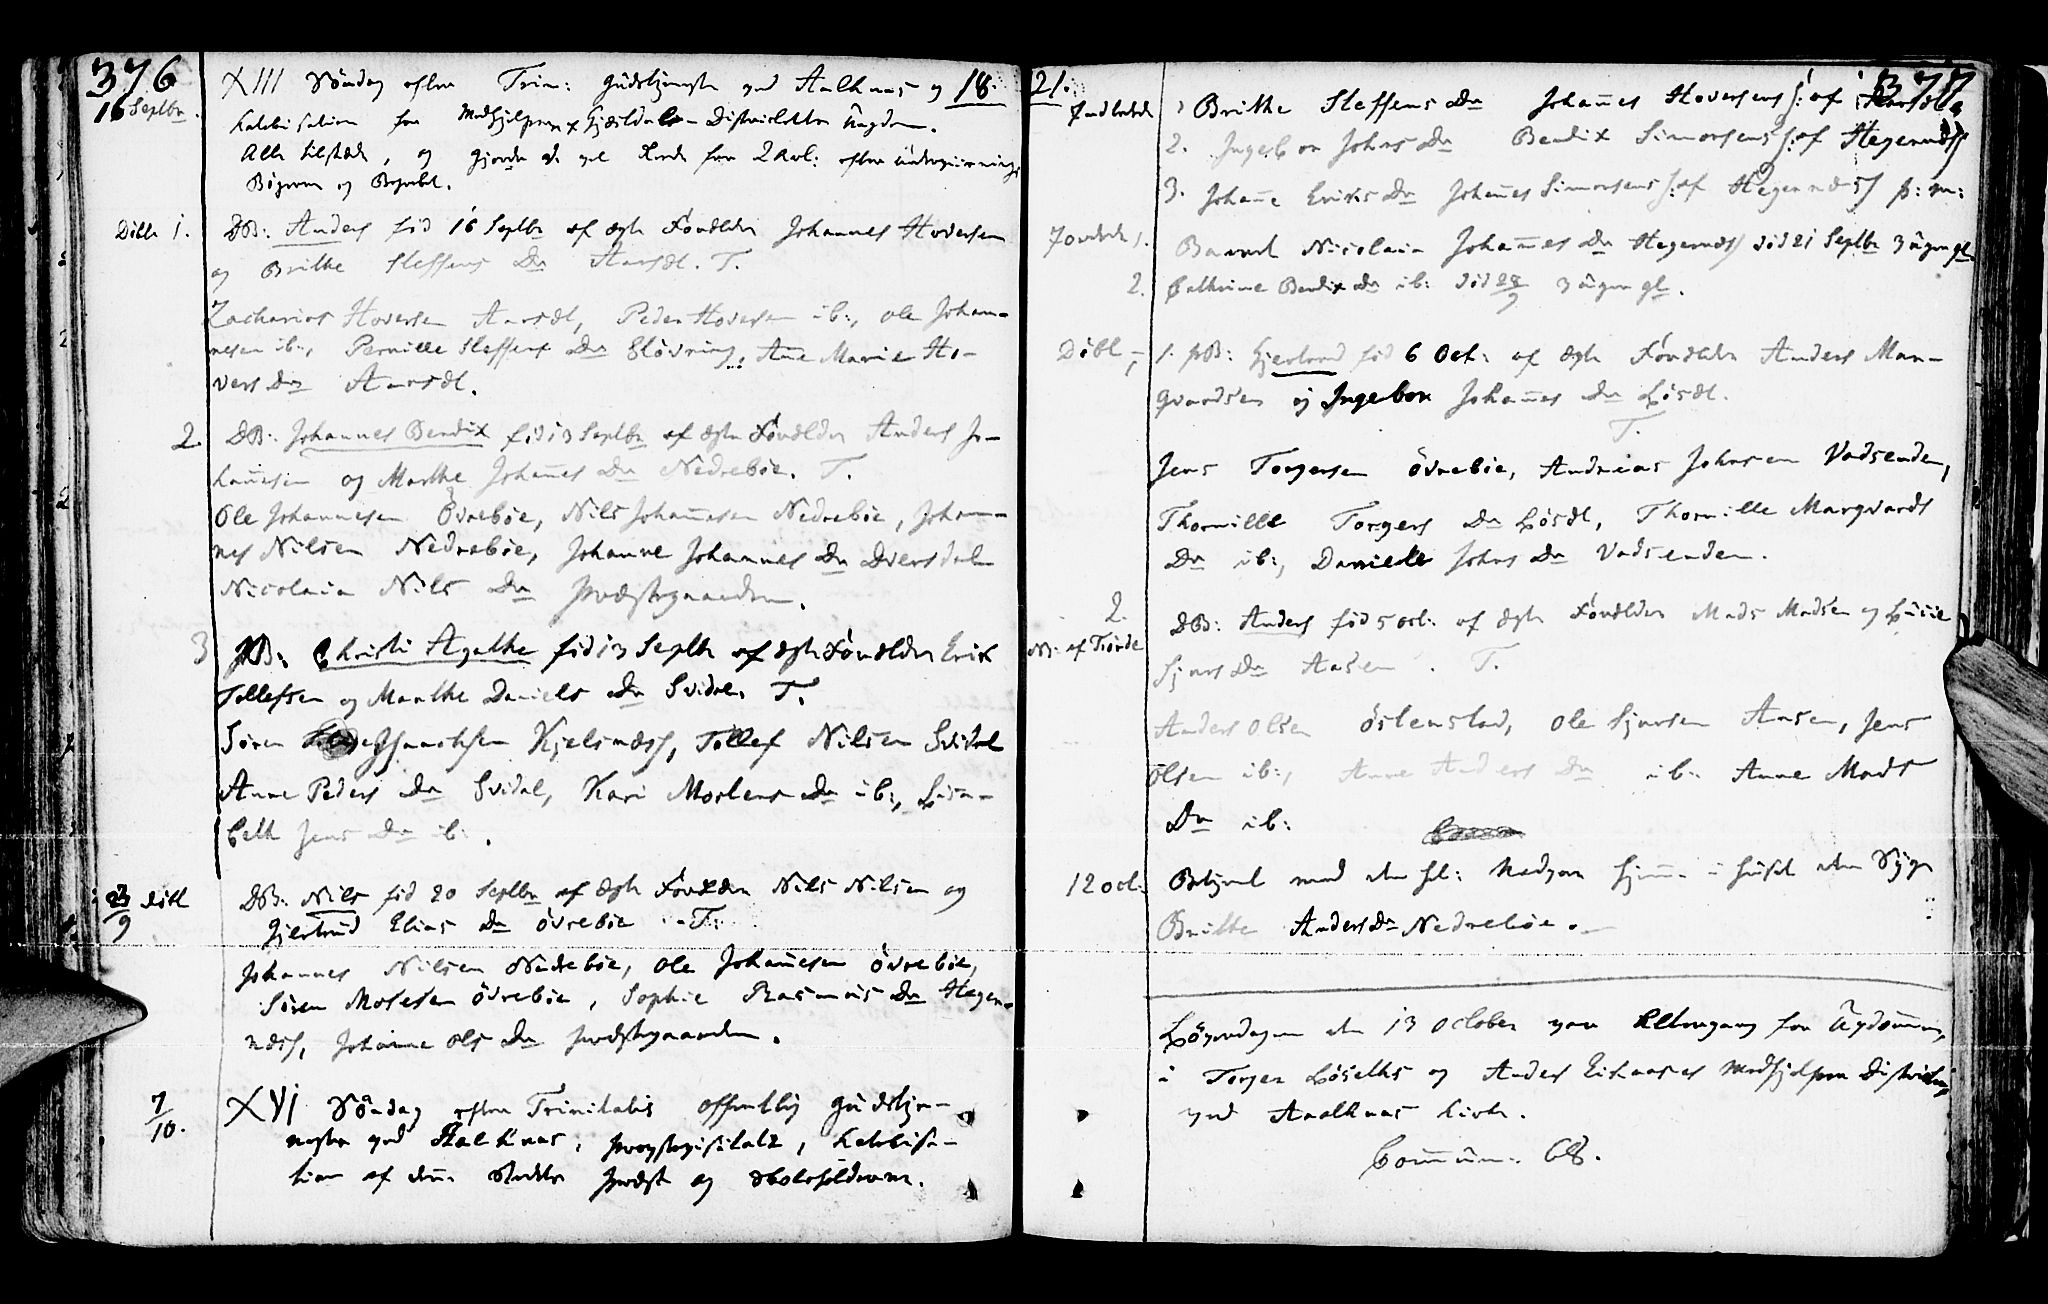 376
XIII Söndag efter Trin: Gudstjeneste ved Aalhuus og 18
16 Septbr.
Katekisation for Medhjelper Districtets Ungdom.
Alle tilstæde, og gjorde
Böger og
Döbte 1.
DB: Anders fød 16 Septbr af ægte Forældre Johannes Hoversen
og Brithe Steffens Dr Aarsdt. T.
Zacharias Hoversen Aarsdt, Peder Hoversen ib:, Ole Johan-
nesen ib:, Pernille Steffens Dr Slövning, Anne Marie Ho-
vers Dr Aarsdt.
2. DB: Johannes Bendix fød 13 Septbr af ægte Forældre Anders Jo-
hannesen og Marthe Johannes Dr Nedreböe. T.
Ole Johannesen Övreböe, Nils Johannesen Nedreböe, Johan-
nes Nilsen Nedreböe, Johanne Johannes Dr Dversdal
Nicolaia Nils Dr Præstegaarden.
3 PB: Christi Agathe fød 13 Septbr af ægte Forældre Erick
Tollefsen og Marthe Daniels Dr Svidal. T.
Sören Isaachsen Kjelsnæss, Tollef Nilsen Svidal
Anne Peders Dr Svidal, Kari Mortens Dr ib:, Lisa-
beth Jens Dr ib:.
23/9 döbt
DB: Nils fød 20 Septbr af ægte Forældre Nils Nilsen og
Gjertrud Elias Dr Övreböe T.
Johannes Nilsen Nedreböe, Ole Johannesen Övreböe,
Sören Mosesen Övreböe, Sophie Rasmus Dr Hegre-
næss, Johanne Ols Dr Præstegaarden.
7/10. XVI Söndag efter Trinitatis offentlig Gudstje-
neste ved Aalhuus, Provstevisitatz, Katekisa-
tion af Præst og Skoleholderne.
21.
377
Indledede 1 Brithe Steffens Dr Johannes Hoversens H: af Aarsdt
2. Ingebor Johns Dr Bendix Simonsens H: af Hegrenæss
3. Johanne Eriks Dr Johannes Simonsens H: af Hegrenæss
Jordede 1. Barnet Nicolaia Johannes Dr Hegrenæss död 21 Septbr 3 uger gl.
2. Cathrine Bendix Dr ib: död 28/9 3 uger gl.
Döbt, 1. PB: Gjertrud fød 6 Oct: af ægte Forældre Anders Mar-
qvardsen og Ingebor Johannes Dr Lösdt.
T.
Jens Torgersen Övreböe, Andreas Johnsen Vadsenden,
Thornille Torgers Dr Lösdt, Thornille Marqvards
Dr ib:, Danielle Johns Dr Vadsenden.
2.
af Förde
DB: Anders fød 5 Oct: af ægte Forældre Mads Madsen og Lucie
Sjurs Dr Aasen. T.
Anders Olsen Östenstad, Ole Sjursen Aasen, Jens
Olsen ib:, Anne Anders Dr ib: Anne Mads
Dr ib:
12 Oct: Betjent med den hel: Nadvere hjemme i Huset den Syge
Brithe Anders Dr Nedreböe.
Lögverdagen den 13 October var Altergang for Ungdommen,
i Torger Löseths og Anders Eikaases Medhjelper Districter,
ved Aalhuus Kirke.
Commun: 68.